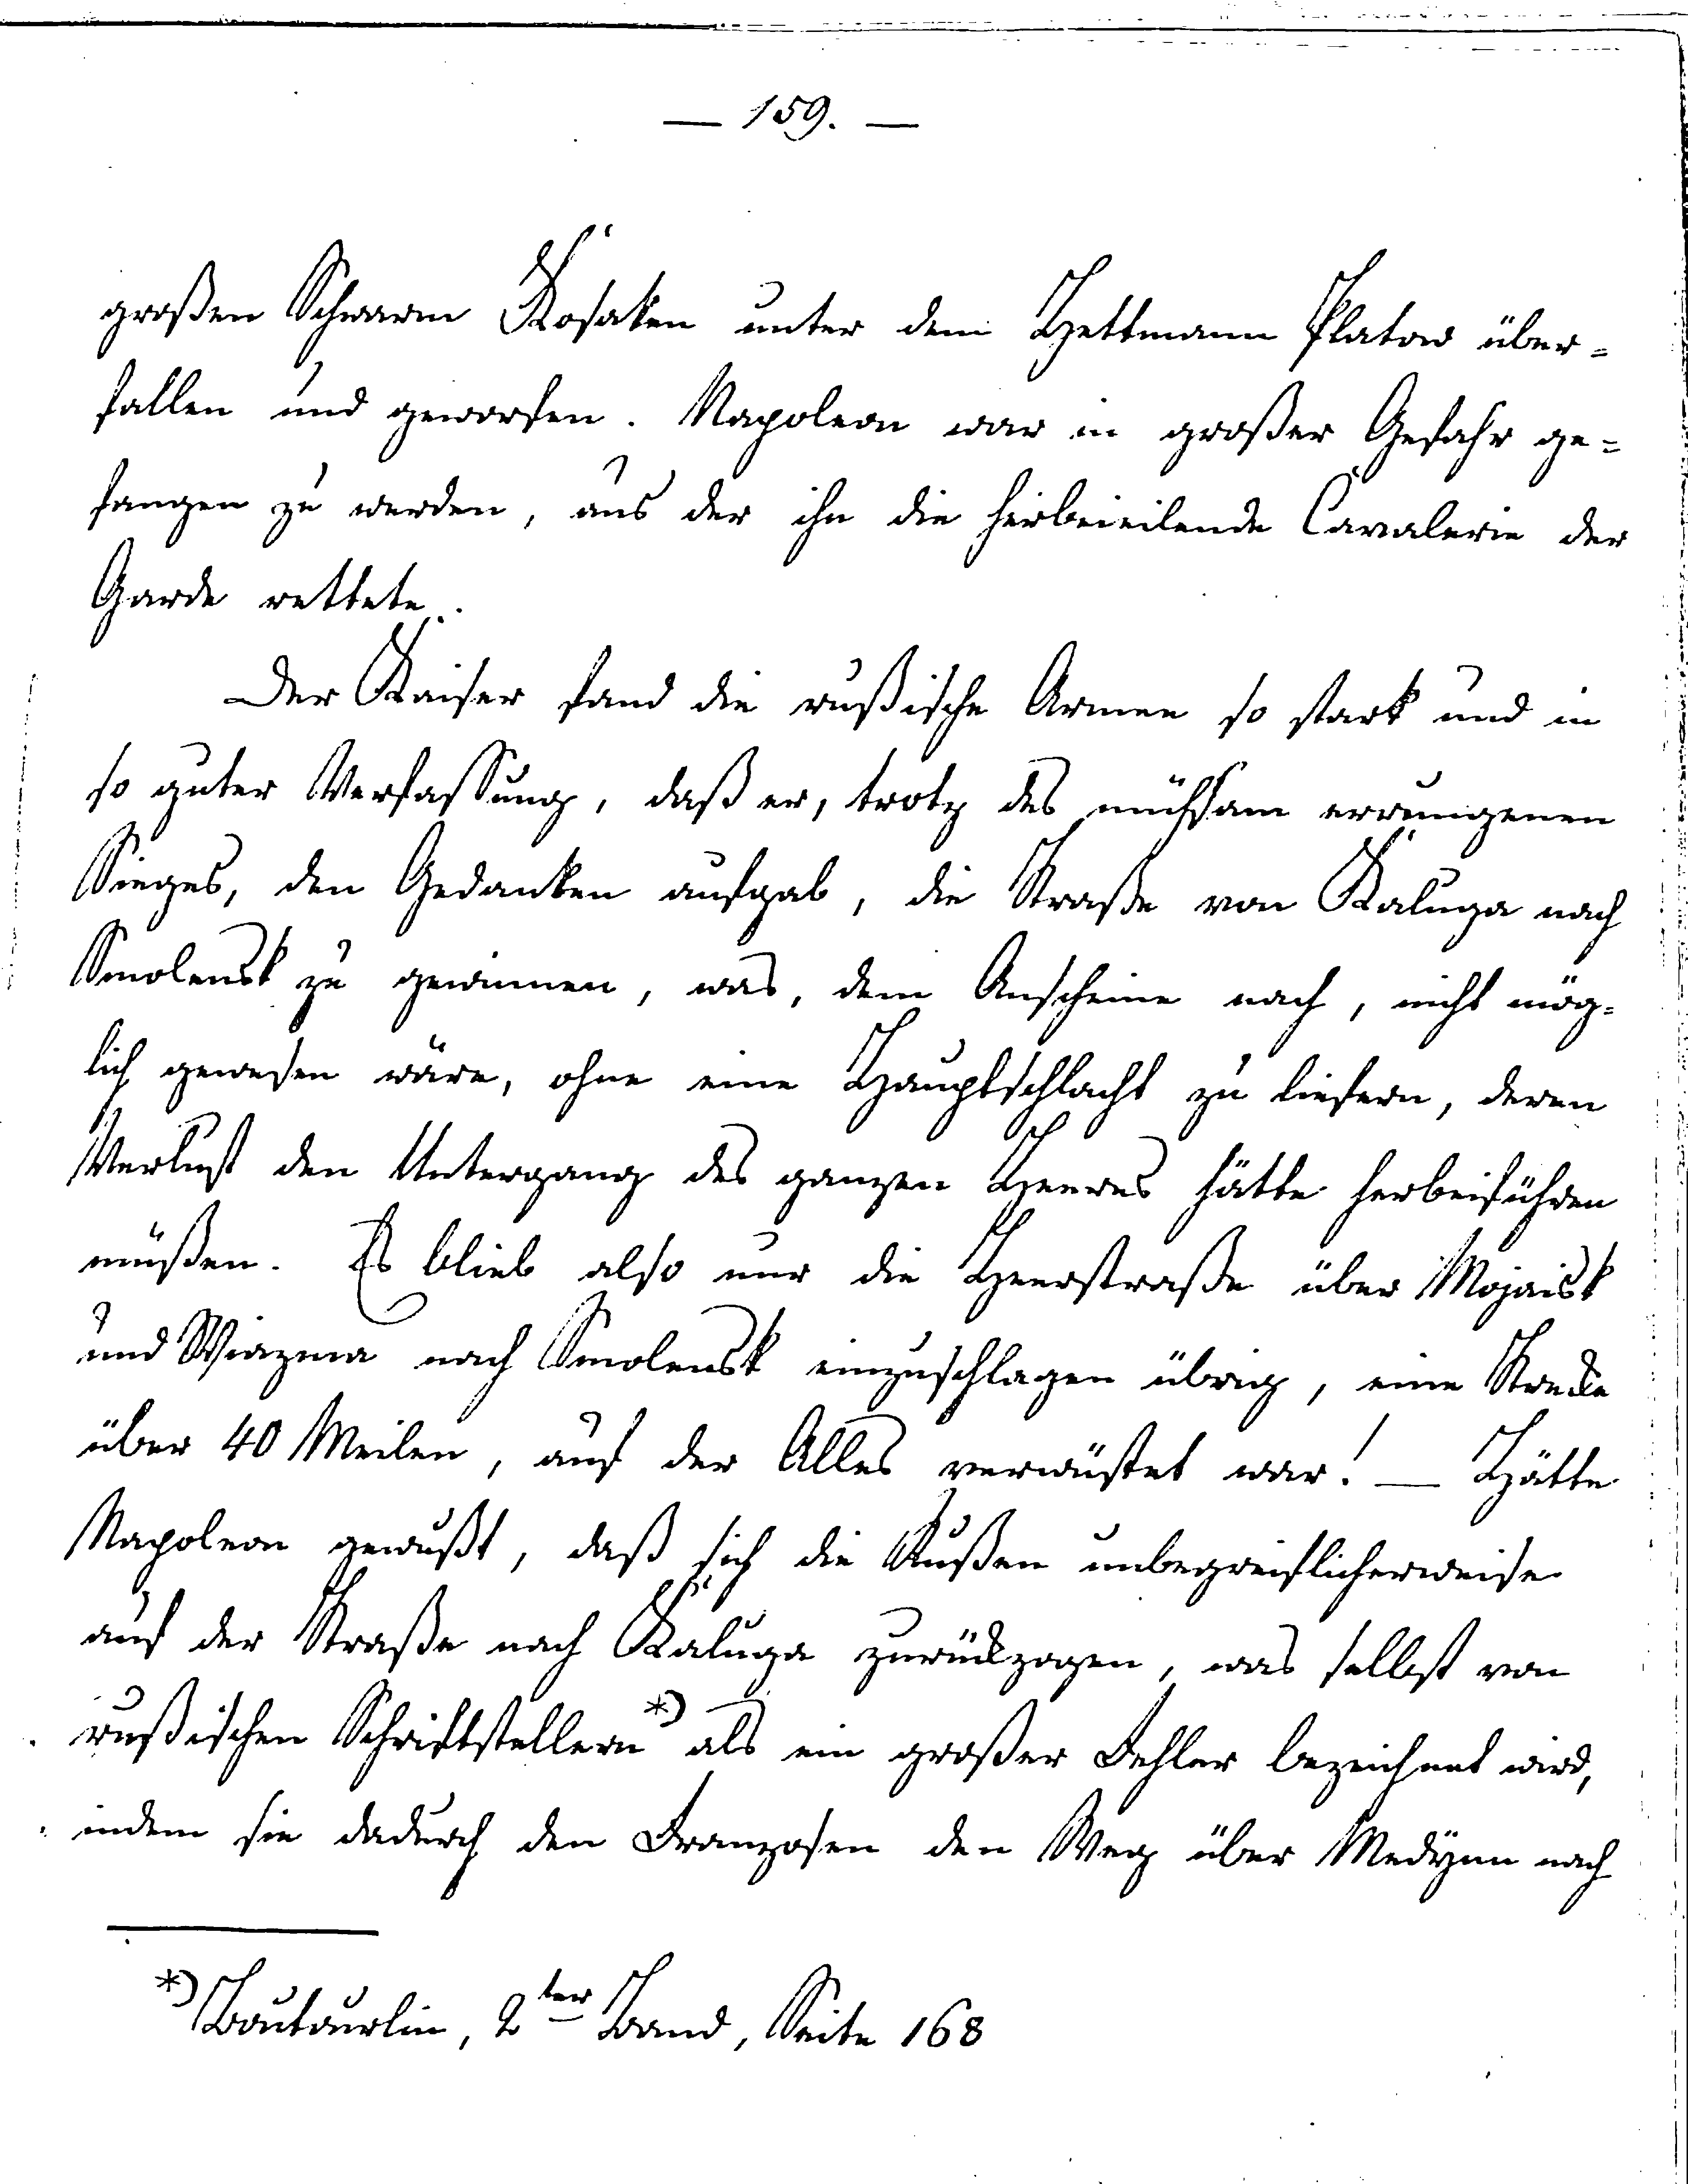 — 159. —
großen Schwarm Kosaken unter dem Hettmann Platow über-
fallen und geworfen. Napoleon war in großer Gefahr ge-
fangen zu werden, aus der ihn die herbeieilende Cavalerie der
Garde rettete.
Der Kaiser fand die rußische Armee so stark und in
so guter Verfassung, daß er, trotz des mühsam errungenen
Sieges, den Gedanken aufgab, die Straße von Kaluga nach
Smolensk zu gewinnen, was, dem Anscheine nach, nicht mög-
lich gewesen wäre, ohne eine Hauptschlacht zu liefern, deren
Verlust den Untergang des ganzen Heeres hätte herbeiführen
müßen. Es blieb also nur die Heerstraße über Mojaisk
und Wiazma nach Smolensk einzuschlagen übrig, eine Strecke
über 40 Meilen, auf der Alles verwüstet war! — Hätte
Napoleon gewußt, daß sich die Rußen unbegreiflicherweise
auf der Straße nach Kaluga zurückzogen, was selbst von
rußischen Schriftstellern *) als ein großer Fehler bezeichnet wird,
indem sie dadurch den Franzosen den Weg über Medynn nach
*) Boutourlin, 2ter Band, Seite 168